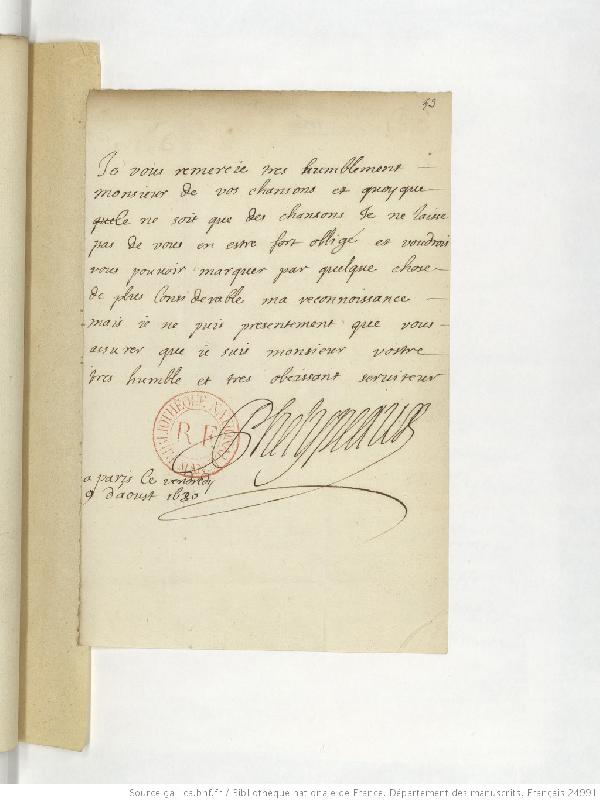 53
Je vous remercie tres humblement
monsieur de vos chansons et quoy que
ce ne soit que des chansons Je ne laisse
pas de vous en estre fort obligé et voudrois
vous pouvoir marquer par quelque chose
de plus considerable ma reconnoissance
mais ie ne puis presentement que vous
assurer que ie suis monsieur vostre
tres humble et tres obeissant serviteur
BIBLIOTHÈQUE NATIONALE
R F
MAN
a paris ce vendredy
9 daoust 1680
Source gallica.bnf.fr / Bibliothèque nationale de France. Département des manuscrits. Français 24991